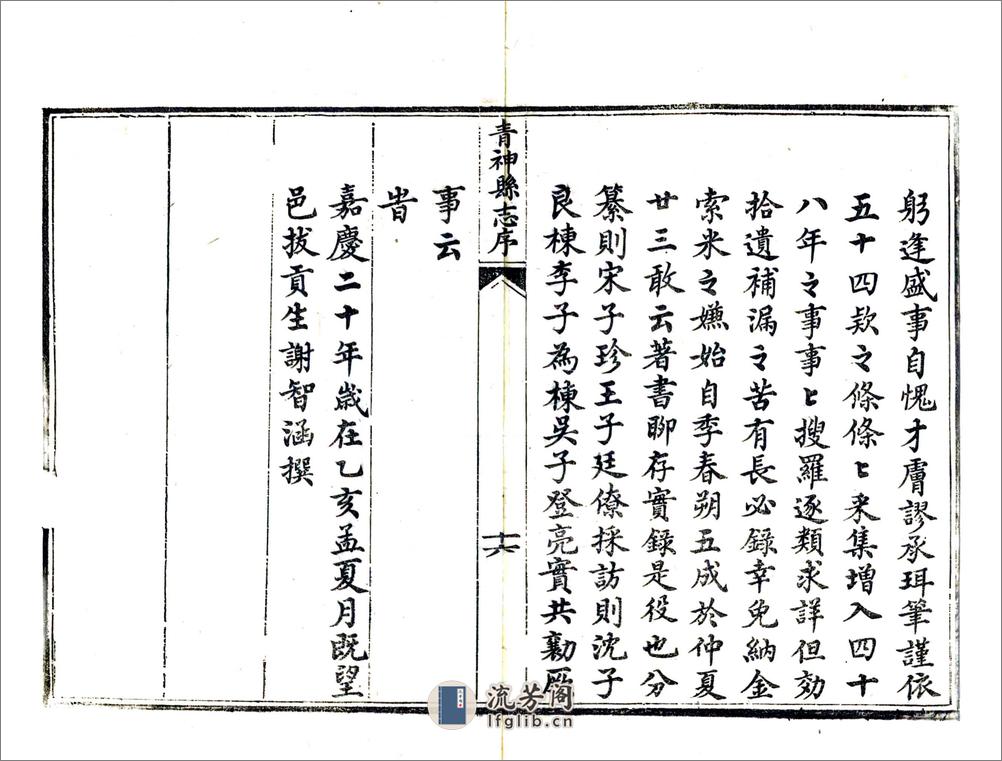 躬逢盛事自愧才膚謬承珥筆謹依
五十四款之條條〻采集增入四十
八年之事事〻搜羅逐類求詳但効
拾遺補漏之苦有長必錄幸免納金
索米之嫌始自季春朔五成於仲夏
廿三敢云著書聊存實錄是役也分
纂則宋子珍王子廷僚採訪則沈子
良棟李子為棟吳子登亮實共勷厥
青神縣志序
十六
事云
旹
嘉慶二十年歲在乙亥孟夏月既望
邑拔貢生謝智涵撰
流芳阁
lfglib.cn